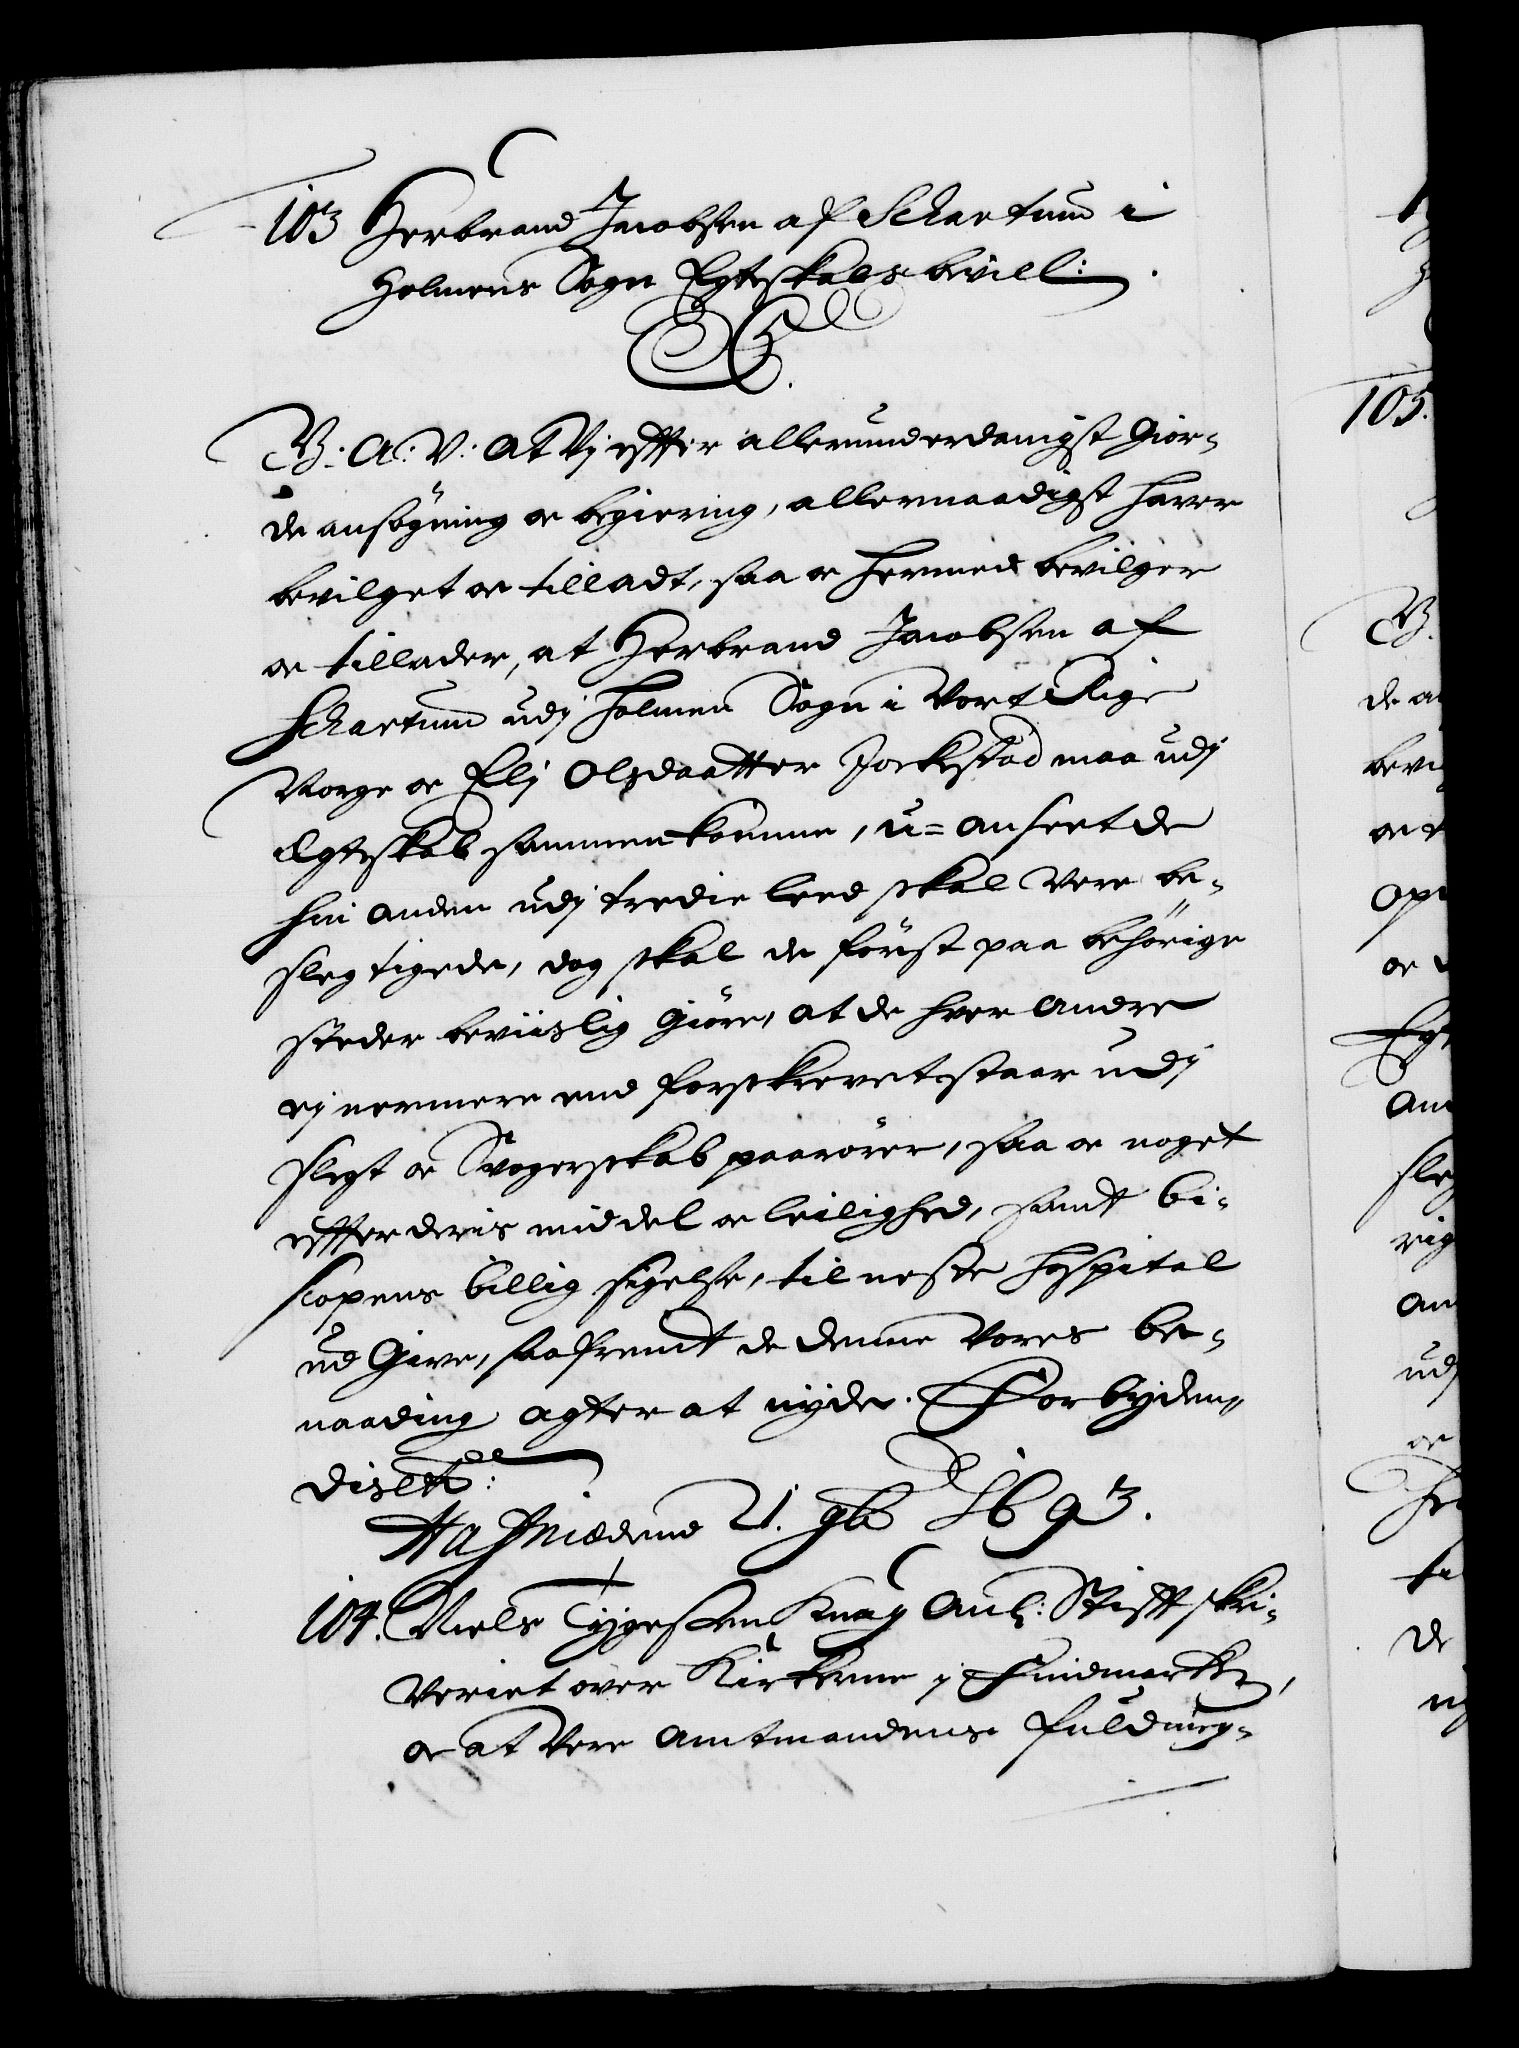 103 Herbrand Jacobsen af Schartum i
Holmens Sogn Egteskabs bevill:
C5.
G: A: V: At Vi effter allerunderdanigst Giör-
de ansögning oc begiering, allernaadigst hafver
bevilget oc tilladt, saa oc hermed bevilger
oc tillader, at Herbrand Jacobsen af
Schartum udj Holmen Sogn i Vort Rige
Norge oc Elj Olsdaatter Jockestad maa udj
Egteskab sammenkomme, u=anseet de
hin anden udj tredie leed skal Vere be-
slegtigede, dog skal de först paa behörige
steder beviislig Giöre, at de hver andre
ej nermere end forskrevet staar udj
slegt oc Svogerskab paarörer, saa oc noget
effter deris middel oc leilighed, samt bi-
scopens billig sigelse, til neste Hospital
ud Give, saafremt de denne Vores be-
naading agter at nyde. Forbyden-
dis etc:
Hafniædend 21. 9b 1693.
104. Niels Tygesen Knag Anl: Stifft skri-
veriet over Kirkerne j Findmarken,
oc at Vere Amtmandens fuldmeg-
105.
G.
de an
bevi
oc t
Op
oc
Egt
An
sleg
rig
an
udj
oc
fr
ti
de